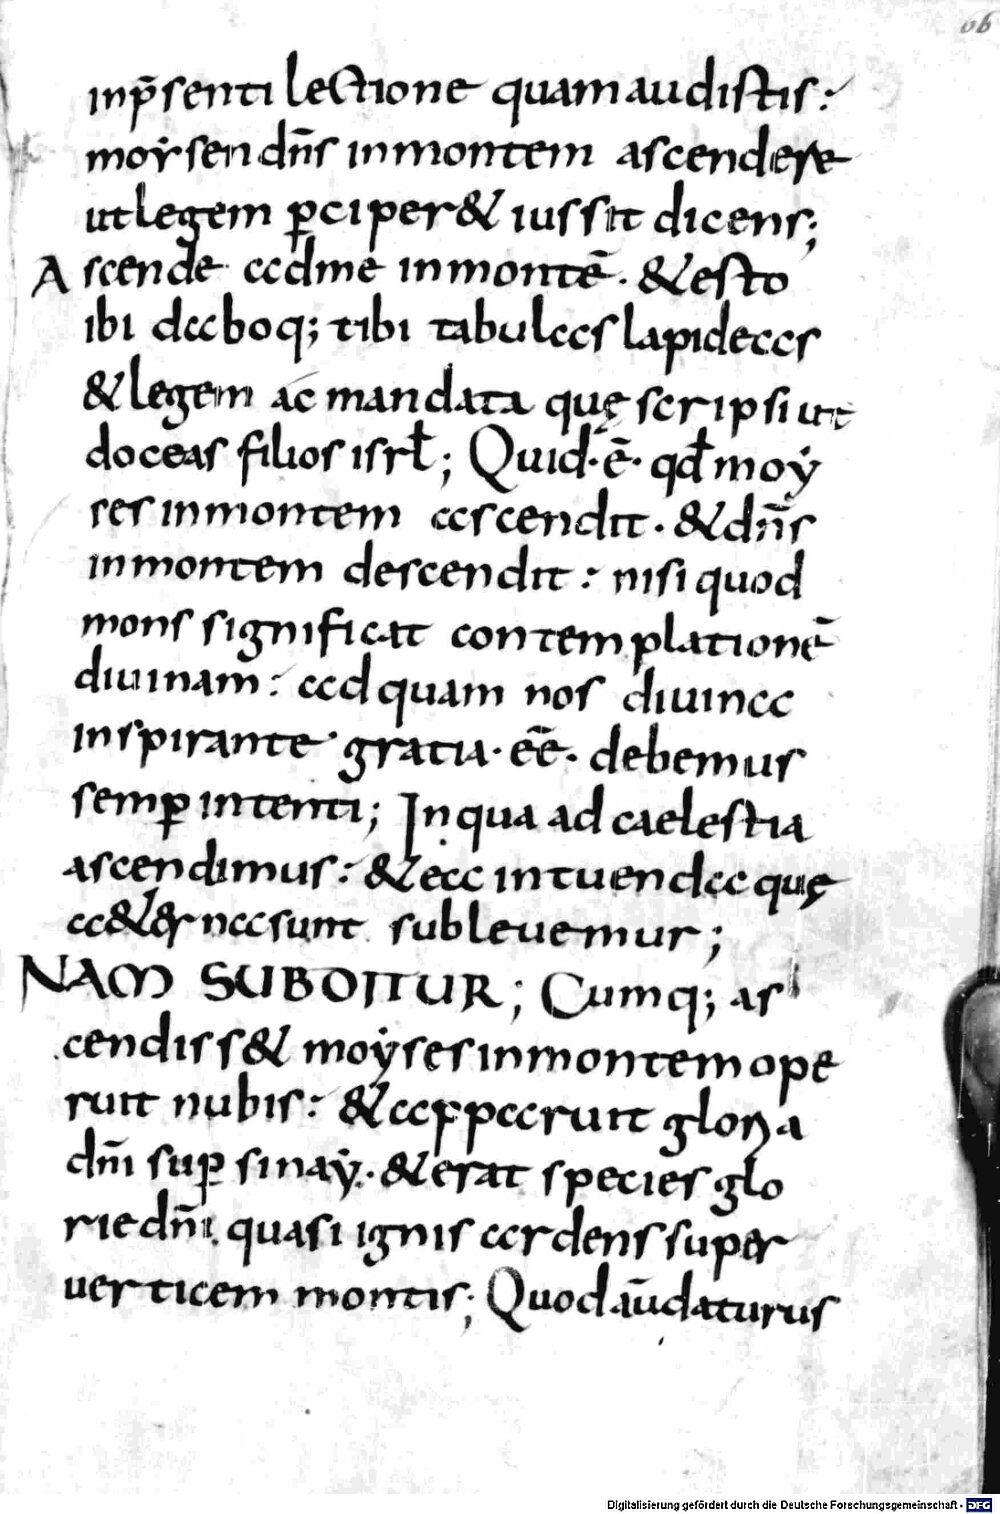 inp̄senti lectione quam audistis:
moẏsen dn̄s inmontem ascendere
ut legem ꝑciper& iussit dicens;
Ascende adme inmontē. &esto
ibi daboq; tibi tabulas lapideas
&legem ac mandata quę scripsi ut
doceas filios isrł; Quid·ē· qđ moẏ
ses inmontem ascendit. &dn̄s
inmontem descendit: nisi quod
mons significat contemplationē
diuinam: ad quam nos diuina
inspirante gratia· eē· debemus
semꝑ intenti; In qua ad caelestia
ascendimus: &ea intuenda quę
a&erna sunt subleuemur;
NAM SUBDITUR; Cumq; as
cendiss& moẏses inmontem ope
ruit nubis: &apparuit gloria
dn̄i suꝑ sinaẏ. &erat species glo
rie dn̄i quasi ignis ardens super
uerticem montis; Quod aūdaturus
Digitalisierung gefördert durch die Deutsche Forschungsgemeinschaft - DFG